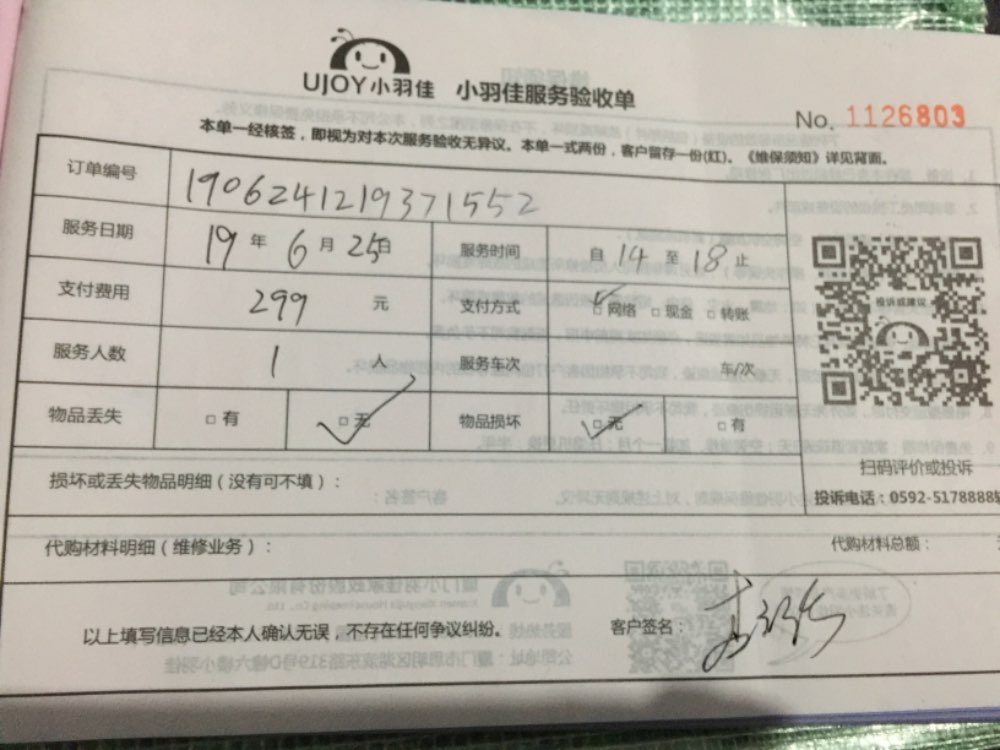 UJOY小羽佳 小羽佳服务验收单
No. 1126803
本单一经核签，即视为对本次服务验收无异议。本单一式两份，客户留存一份(红)。《维保须知》详见背面。
订单编号 1906241219371552
服务日期 19 年 6 月 25 日 服务时间 自 14 至 18 止
支付费用 299 元 支付方式 □网络 □现金 □转账
服务人数 1 人 服务车次 车/次
物品丢失 □有 □无 物品损坏 □无 □有
投诉或建议
扫码评价或投诉
投诉电话：0592-5178888
损坏或丢失物品明细（没有可不填）：
代购材料明细（维修业务）： 代购材料总额：
以上填写信息已经本人确认无误，不存在任何争议纠纷。 客户签名：